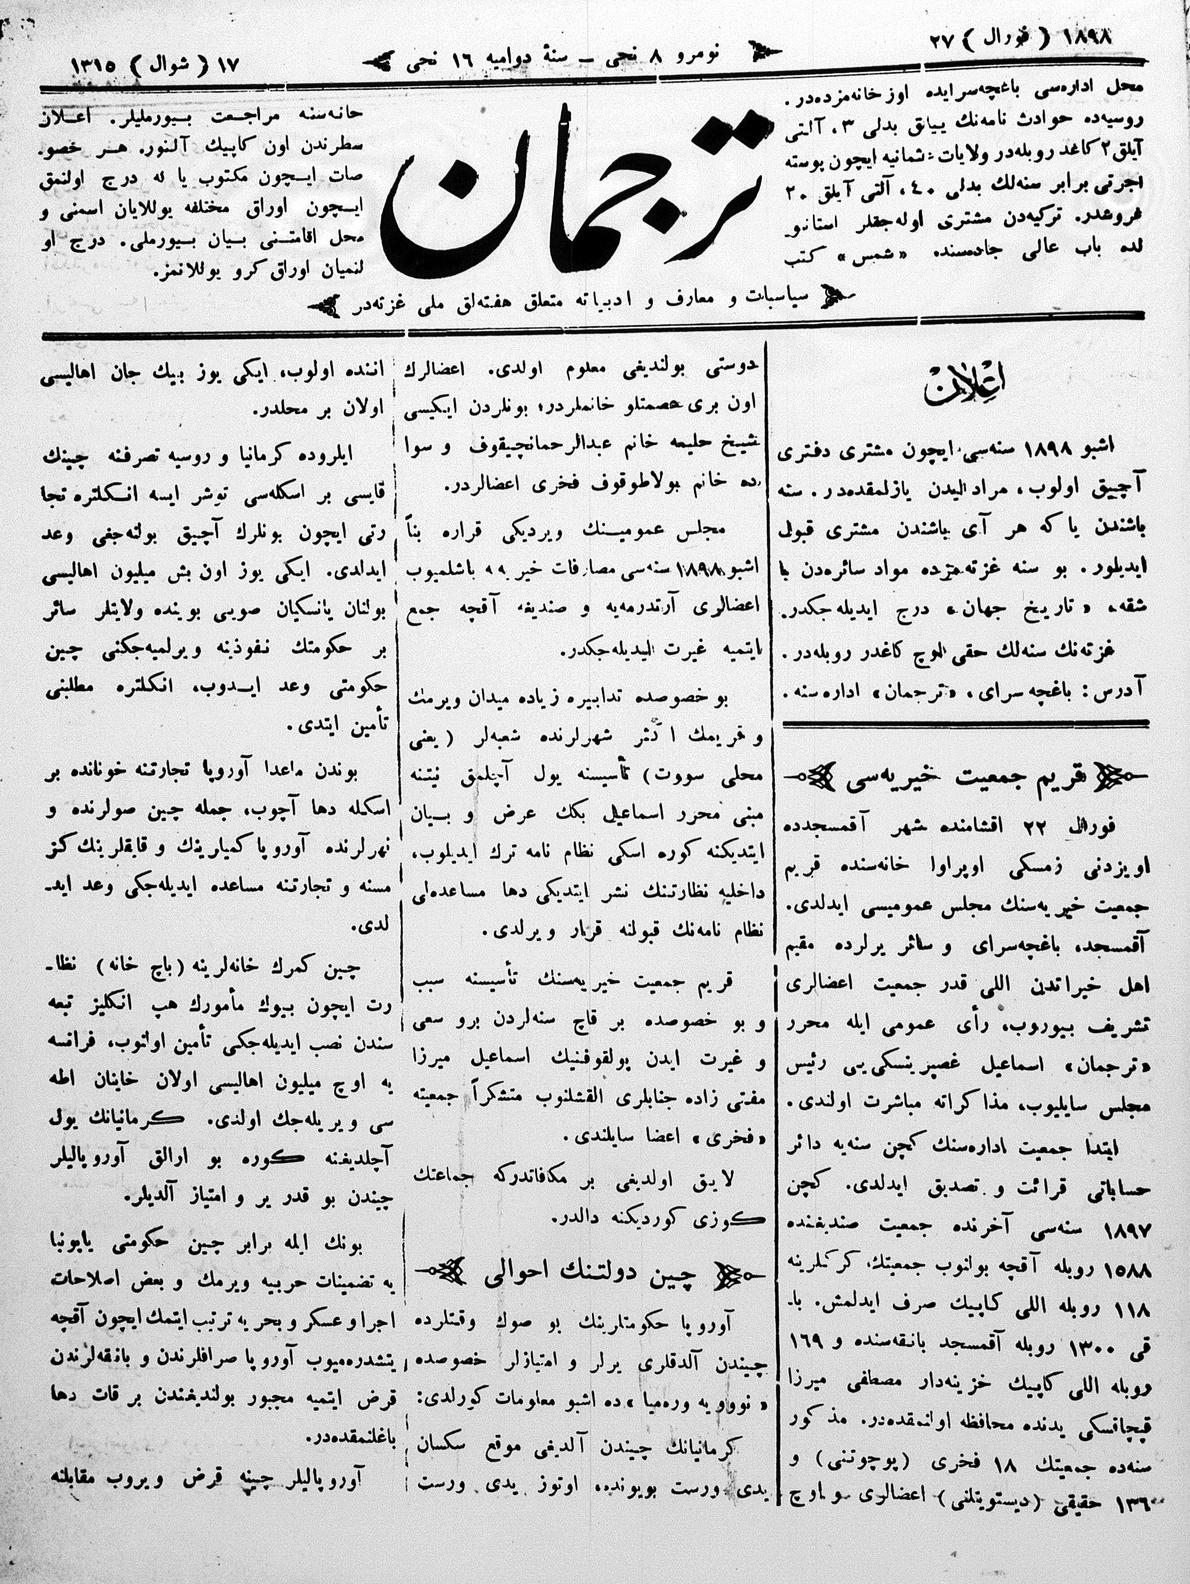 ١٨٩٨ ( فورال ) ٢٧
نومرو ٨ نجی — سنهٔ دوامیه ١٦ نجی
١٧ ( شوال ) ١٣١٥
محل اداره‌سی باغچه‌سرایده اوز خانه‌مزده‌در.
روسیه‌ده حوادث نامه‌نك ییللق بدلی ٣، آلتی
آیلق ٢ کاغد روبله‌در ولایات عثمانیه ایچون پوسته
اجرتی برابر سنه‌لك بدلی ٤٠، آلتی آیلق ٢٠
غروشدر. ترکیه‌دن مشتری اوله‌جقلر استانبو-
لده باب عالی جاده‌سنده «شمس» کتب
ترجمان
خانه‌سنه مراجعت بیورملیلر. اعلان
سطرندن اون کاپیك آلنور. هر خصو-
صات ایچون مکتوب یا له درج اولنمق
ایچون اوراق مختلفه یوللایان اسمنی و
محل اقامتنی بیان بیورملی. درج او
لنمیان اوراق کرو یوللانمز.
سیاسیات و معارف و ادبیاته متعلق هفته‌لق ملی غزته‌در
اعلان
اشبو ١٨٩٨ سنه‌سی ایچون مشتری دفتری
آچیق اولوب، مراد ایدن یازلمقده‌در. سنه
باشندن یا که هر آی باشندن مشتری قبول
ایدیلور. بو سنه غزته‌مزده مواد سائره‌دن با
شقه، «تاریخ جهان» درج ایدیله‌جکدر.
غزته‌نك سنه‌لك حقی اوچ کاغدر روبله‌در.
آدرس: باغچه‌سرای، «ترجمان» اداره‌سنه.
قریم جمعیت خیریه‌سی
فورال ٢٢ اقشامنده شهر آقمسجدده
اویزدنی زمسکی اوپراوا خانه‌سنده قریم
جمعیت خیریه‌سنك مجلس عمومیسی ایدلدی.
آقمسجد، باغچه‌سرای و سائر یرلرده مقیم
اهل خیراتدن اللی قدر جمعیت اعضالری
تشریف بیوروب، رأی عمومی ایله محرر
«ترجمان» اسماعیل غصپرینسکی‌یی رئیس
مجلس سایلیوب، مذاکراته مباشرت اولندی.
ابتدا جمعیت اداره‌سنك کچن سنه‌یه دائر
حساباتی قرائت و تصدیق ایدلدی. کچن
١٨٩٧ سنه‌سی آخرنده جمعیت صندیغنده
١٥٨٨ روبله آقچه بولنوب جمعیتك کرکلرینه
١١٨ روبله اللی کاپیك صرف ایدلمش. با-
قی ١٣٠٠ روبله آقمسجد بانقه‌سنده و ١٦٩
روبله اللی کاپیك خزینه‌دار مصطفی میرزا
قپچاقسکی یدنده محافظه اولنمقده‌در. مذکور
سنه‌ده جمعیتك ١٨ فخری (پوچوتنی) و
١٣٦ حقیقی (دیستویتلنی) اعضالری و اوچ
دوستی بولندیغی معلوم اولدی. اعضالرك
اون بری عصمتلو خانملردر؛ بونلردن ایکیسی
شیخ حلیمه خانم عبدالرحمانچیقوف و سوا
ده خانم بولاطوقوف فخری اعضالردر.
مجلس عمومینك ویردیکی قراره بناً
اشبو ١٨٩٨ سنه‌سی مصارفات خیریه باشلمیوب
اعضالری آرتدرمه‌یه و صندیغه آقچه جمع
ایتمیه غیرت ایدیله‌جکدر.
بو خصوصده تدابیره زیاده میدان ویرمك
و قریمك اکثر شهرلرنده شعبه‌لر (یعنی
محلی سووت) تأسیسنه یول آچلمق نیتنه
مبنی محرر اسماعیل بکك عرض و بیان
ایتدیکنه کوره اسکی نظام نامه ترك ایدیلوب،
داخلیه نظارتنك نشر ایتدیکی دها مساعده‌لی
نظام نامه‌نك قبولنه قرار ویرلدی.
قریم جمعیت خیریه‌سنك تأسیسنه سبب
و بو خصوصده بر قاچ سنه‌لردن برو سعی
و غیرت ایدن پولقوفنیك اسماعیل میرزا
مفتی زاده جنابلری القشلنوب متشکراً جمعیته
«فخری» اعضا سایلندی.
لایق اولدیغی بر مکافاتدرکه جماعتك
کوزی کوردیکنه دالدر.
چین دولتنك احوالی
آوروپا حکومتلرینك بو صوك وقتلرده
چیندن آلدقلری یرلر و امتیازلر خصوصده
«نوویه وره‌میا» ده اشبو معلومات کورلدی:
کرمانیانك چیندن آلدیغی موقع سکسان
یدی ورست بویونده، اوتوز یدی ورست
اننده اولوب، ایکی یوز بیك جان اهالیسی
اولان بر محلدر.
ایلروده کرمانیا و روسیه تصرفنه چینك
قایسی بر اسکله‌سی توشر ایسه انکلتره تجا
رتی ایچون بونلرك آچیق بولنه‌جغی وعد
ایدلدی. ایکی یوز اون بش میلیون اهالیسی
بولنان یانسکیان صویی بوینده ولایتلر سائر
بر حکومتك نفوذینه ویرلمیه‌جکنی چین
حکومتی وعد ایدوب، انکلتره مطلبنی
تأمین ایتدی.
بوندن ماعدا آوروپا تجارتنه خونانده بر
اسکله دها آچوب، جمله چین صولرنده و
نهرلرنده آوروپا کمیارینك و قایقلرینك کز
مسنه و تجارتنه مساعده ایدیله‌جکی وعد اید-
لدی.
چین کمرك خانه‌لرینه (باج خانه) نظا-
رت ایچون بیوك مأمورك هپ انکلیز تبعه
سندن نصب ایدیله‌جکی تأمین اولنوب، فرانسه
یه اوچ میلیون اهالیسی اولان خاینان اطه
سی ویریله‌جك اولدی. کرمانیانك یول
آچلدیغنه کوره بو ارالق آوروپالیلر
چیندن بو قدر یر و امتیاز آلدیلر.
بونك ایله برابر چین حکومتی یاپونیا
یه تضمینات حربیه ویرمك و بعض اصلاحات
اجرا و عسکر و بحریه ترتیب ایتمك ایچون آقچه
یتشدره‌میوب آوروپا صرافلرندن و بانقه‌لرندن
قرض ایتمیه مجبور بولندیغندن بر قات دها
باغلنمقده‌در.
آوروپالیلر چینه قرض ویروب مقابلنه